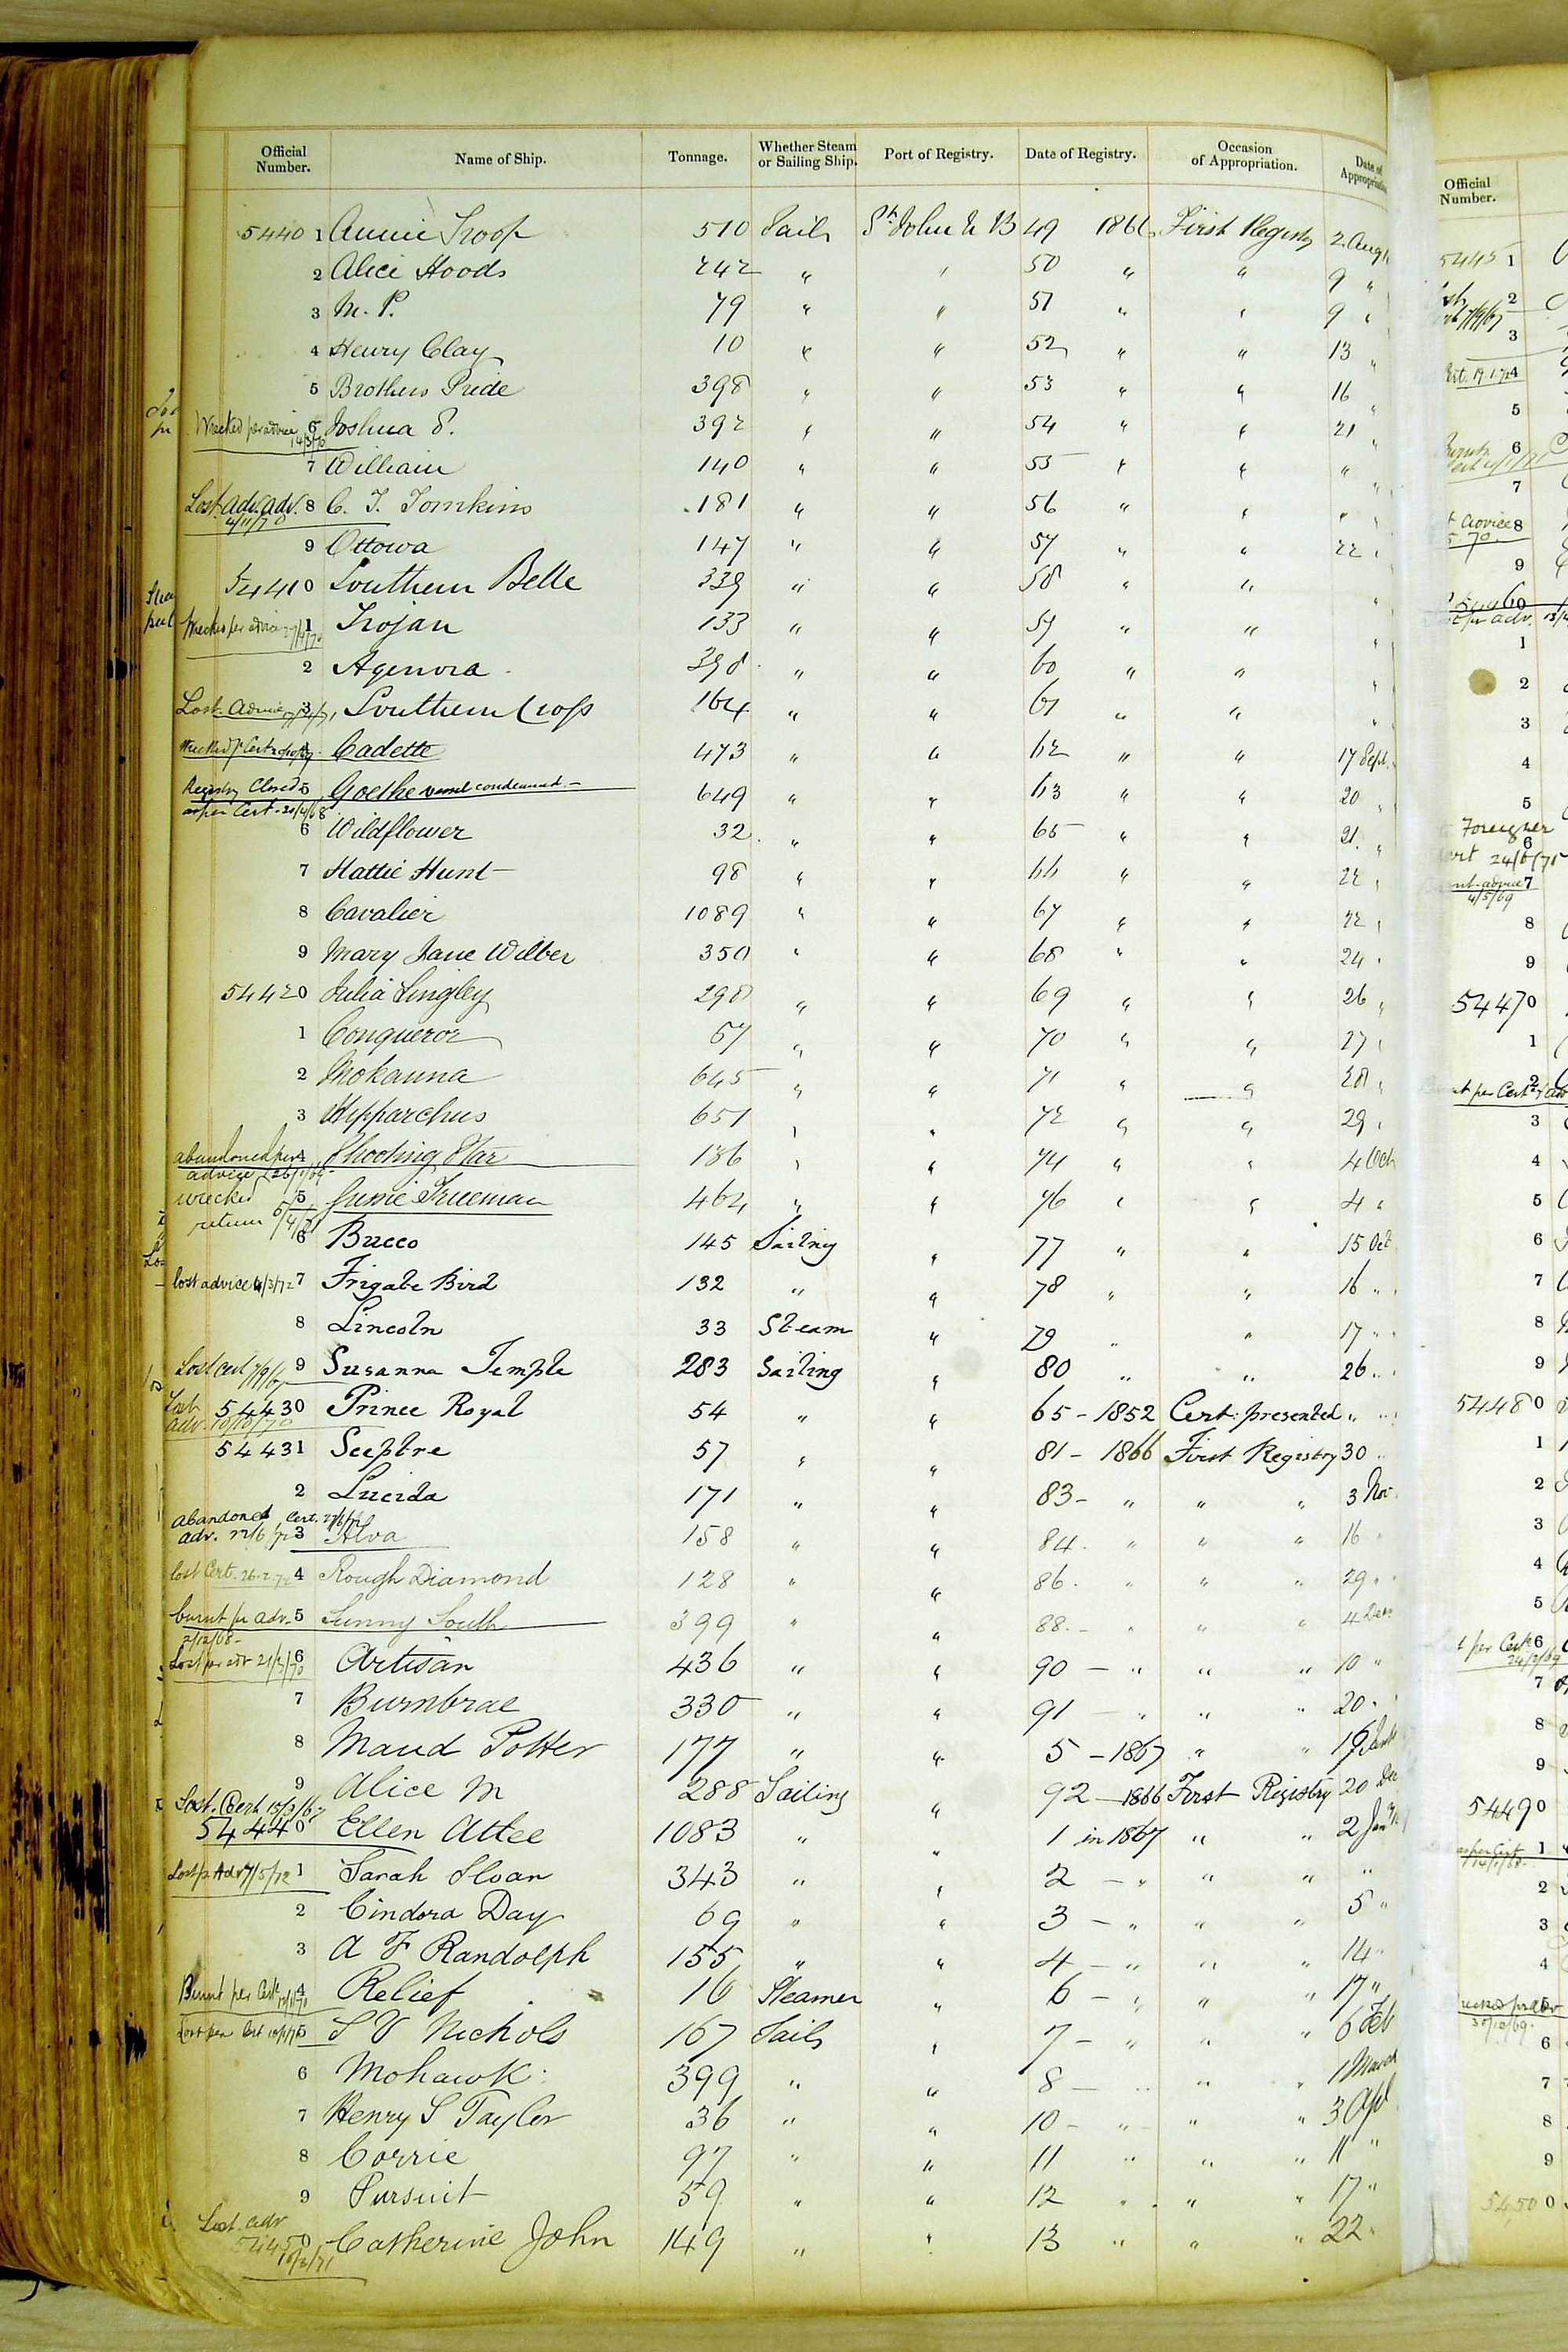 Official Number. Name of Ship. Tonnage. Whether Steam or Sailing Ship. Port of Registry. Date of Registry. Occasion of Appropriation. Date of
5440 1 Annie Troop 510 Sails St. John N B 49 1866 First Registy 2 Aug
2 Alice Hoods 242 " " 50 " " 9 "
3 M. P. 79 " " 51 " " 9 "
4 Henry Clay 10 " " 52 " " 13 "
5 Brothers Pride 398 " " 53 " " 16 "
Wrecked per advice 6 Joshua 392 " " 54 " " 21 "
7 William 140 " " 55 " " " "
Lost Adv. 8 C. T. Tomkins 181 " " 56 " " " "
4/11/70
9 Ottowa 147 " " 57 " " 22 "
54410 Southern Belle 339 " " 58 " " "
Wrecked per advice 1 Trojan 133 " " 59 " " "
2 Agenora 398 " " 60 " " "
Lost Advice 3 Southern Cross 164 " " 61 " " "
Wrecked pr Cert 4 Cadette 473 " " 62 " " 17 Sept.
Registry Closed 5 Goethe vessel condemned - 649 " " 63 " " 20 "
as per Cert. 20/4/68
6 Wildflower 32 " " 65 " " 21 "
7 Hattie Hunt 98 " " 66 " " 22 "
8 Cavalier 1089 " " 67 " " 22 "
9 Mary Jane Wilber 350 " " 68 " " 24 "
54420 Julia Lingley 298 " " 69 " " 26 "
1 Conqueror 57 " " 70 " " 27 "
2 Mokanna 645 " " 71 " " 28 "
3 Hipparchus 651 " " 72 " " 29 "
abandoned per 4 Shooting Star 186 " " 74 " " 4 Oct
advice
wrecked 5 Trueman 464 " " 76 " " 4 "
return
6 Bucco 145 Sailing " 77 " " 15 Oct
lost advice 4/3/72 7 Frigate Bird 132 " " 78 " " 16 "
8 Lincoln 33 Steam " 79 " " 17 "
Lost Cert 9 Susanna Temple 283 Sailing " 80 " " 26 "
Lost 54430 Prince Royal 54 " " 65 - 1852 Cert: presented " "
adv. 10/10/70
54431 Sceptre 57 " " 81 - 1866 First Registry 30 "
2 Lucida 171 " " 83 - " " " 3 Nov.
abandoned Cert.
adv. 3 Alva 158 " " 84. " " " 16 "
lost Cert. 4 Rough Diamond 128 " " 86. " " " 29 "
burnt pr adv. 5 Sunny South 399 " " 88. - " " " 4 Decr
2/12/68 -
Lost per adv 21/3/70 6 Artisan 436 " " 90 - " " " 10 "
7 Burnbrae 330 " " 91 - " " " 20 "
8 Maud Potter 177 " " 5 - 1867 " "
9 Alice M 288 Sailing " 92 - 1866 First Registry 20 Dec
Lost. Cert 15/3/67
54440 Ellen Attee 1083 " " 1 in 1867 " " 2 Jany
Lost pr Adv 7/5/72 1 Sarah Sloan 343 " " 2 - " " " "
2 Cindora Day 69 " " 3 - " " " 5 "
3 A F Randolph 155 " " 4 - " " " 14 "
Burnt per Cert. 4 Relief 16 Steamer " 6 - " " " 17 "
Lost per Cert 5 S V Nichols 167 Sails " 7 - " " " 6 Feb
6 Mohawk 399 " " 8 - " " " 1 March
7 Henry S Taylor 36 " " 10 - " " " 3 Apl
8 Corrie 97 " " 11 " " " 11 "
9 Pursuit 59 " " 12 " " " 17 "
Lost adv
54450 Catherine John 149 " " 13 " " " 22 "
Official Number.
5445 1
2
3
4
5
6
7
advice 8
9
54460
1
2
3
4
5
Foreigner
6
24/6/75
7
4/5/69
8
9
54470
1
2
3
4
5
6
7
8
9
54480
1
2
3
4
5
per Cert 6
7
8
9
54490
1
2
3
4
5
6
7
8
9
54500